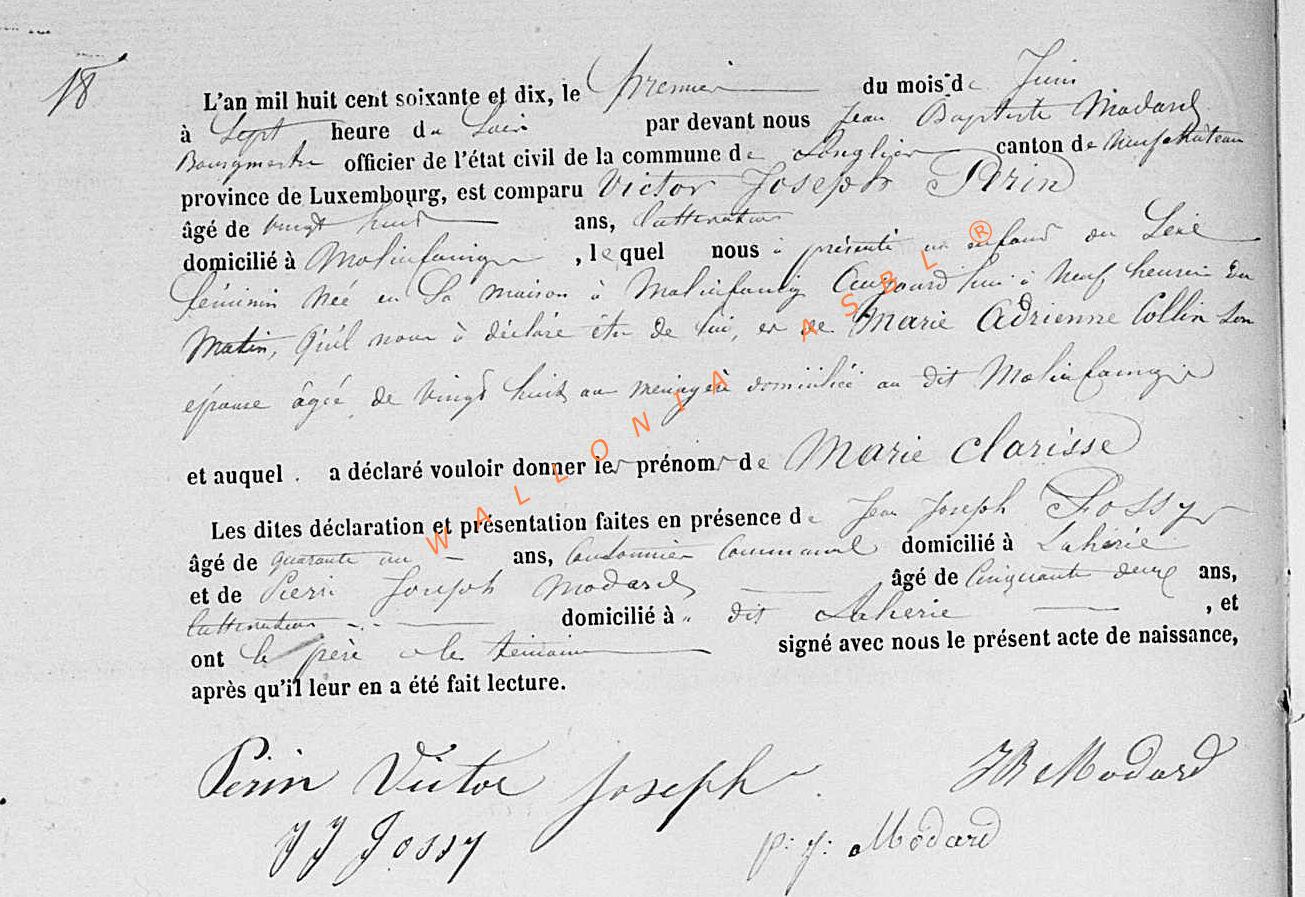 18
L'an mil huit cent soixante et dix, le premier du mois de Juin
à Sept heure du Soir par devant nous Jean Baptiste Modard
Bourgmestre officier de l'état civil de la commune de Longlier canton de Neufchâteau
province de Luxembourg, est comparu Victor Joseph Perin
âgé de vingt huit ans, cultivateur
domicilié à Molinfaing, lequel nous à présenté un enfant du Sexe
féminin née en Sa maison à Molinfaing Aujourd'hui à neuf heures du
Matin, qu'il nous à déclaré être de lui, et de Marie Adrienne Collin Son
épouse âgée de vingt huit ans ménagère domiciliée au dit Molinfaing
et auquel a déclaré vouloir donner les prénoms de Marie Clarisse
Les dites déclaration et présentation faites en présence de Jean Joseph Jossy
âgé de quarante un ans, Cantonnier Communal domicilié à Laherie
et de Pierre Joseph Modard âgé de Cinquante deux ans,
cultivateur domicilié à dit Laherie, et
ont le père et les témoins signé avec nous le présent acte de naissance,
après qu'il leur en a été fait lecture.
Perin Victor Joseph JB Modard
J J Jossy p: j: Modard
WALLONIA ASBL ®